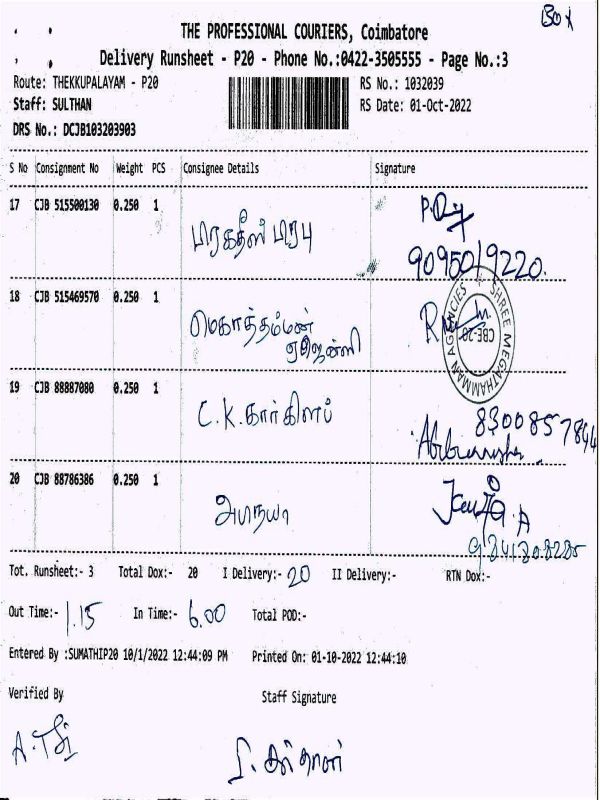 Box
THE PROFESSIONAL COURIERS, Coimbatore
Delivery Runsheet - P20 - Phone No.:0422-3505555 - Page No.:3
Route: THEKKUPALAYAM - P20 RS No.: 1032039
Staff: SULTHAN RS Date: 01-Oct-2022
DRS No.: DCJB103203903
S No Consignment No Weight PCS Consignee Details Signature
17 CJB 515500130 0.250 1 பிரகதீஸ் பிரபு
9095019220.
18 CJB 515469570 0.250 1 மெகாத்தம்மன்
ஏஜென்ஸி
SHREE MEGATHAMMAN AGENCIES
CBE-20
19 CJB 88887080 0.250 1 C.K.கார்கிளப்
8300857894
20 CJB 88786386 0.250 1 அபநயா
Tot. Runsheet:- 3 Total Dox:- 20 I Delivery:- 20 II Delivery:- RTN Dox:-
Out Time:- 1.15 In Time:- 6.00 Total POD:-
Entered By :SUMATHIP20 10/1/2022 12:44:09 PM Printed On: 01-10-2022 12:44:10
Verified By Staff Signature